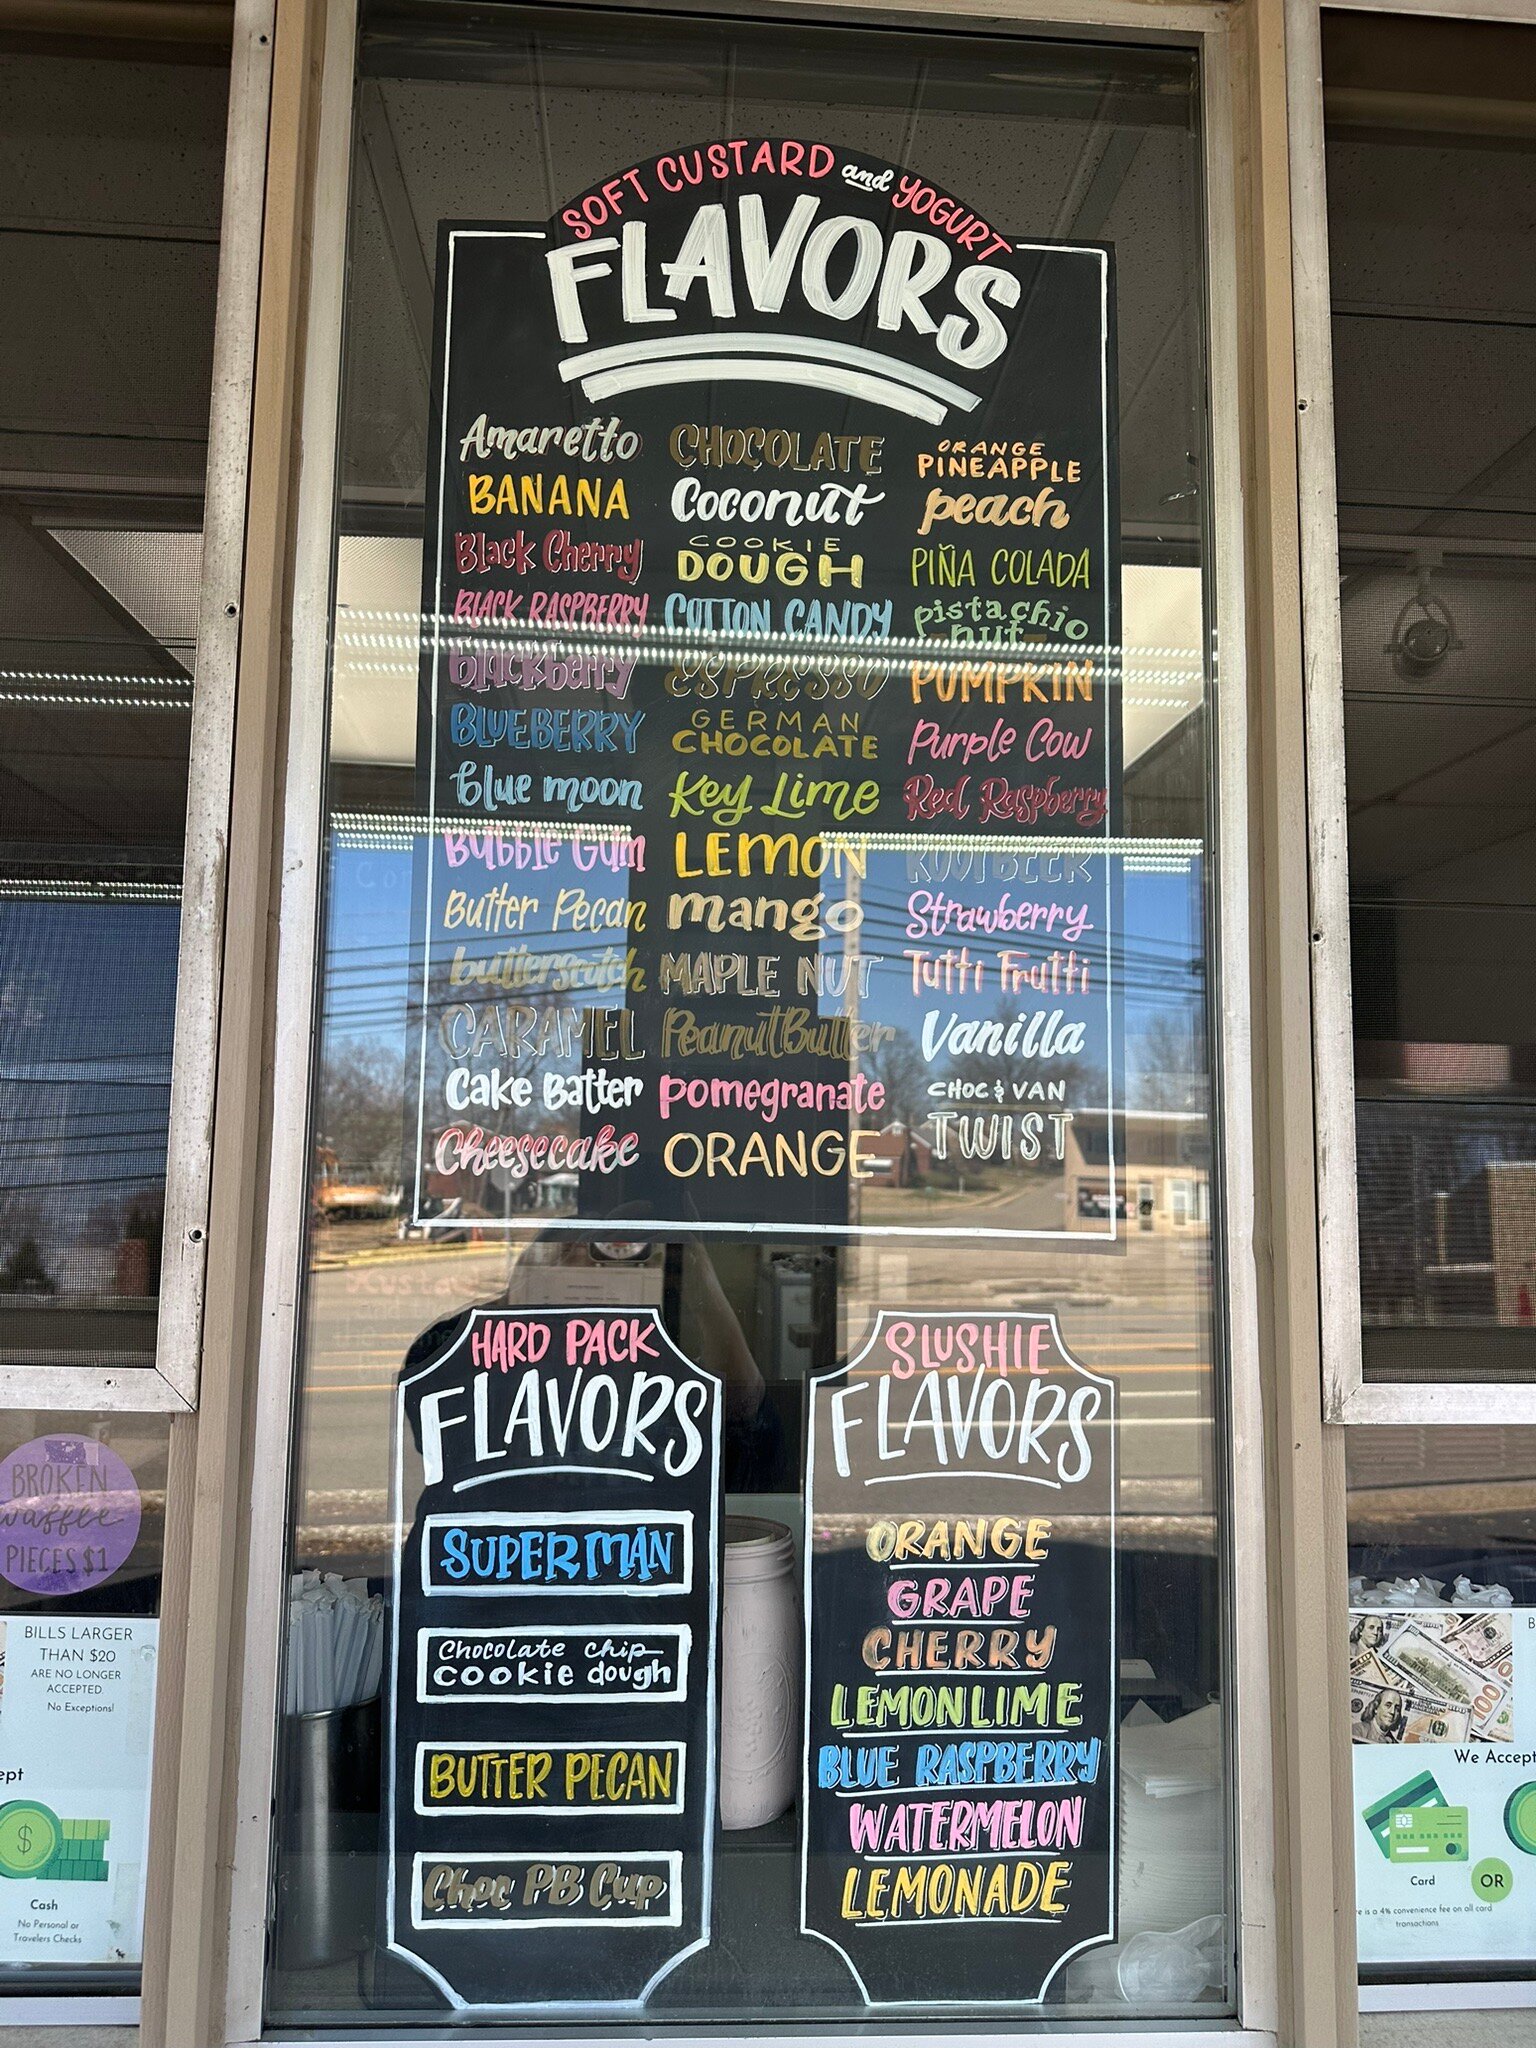 SOFT CUSTARD and YOGURT
FLAVORS
Amaretto
BANANA
Black Cherry
BLACK RASPBERRY
blackberry
BLUEBERRY
blue moon
Bubble Gum
Butter Pecan
butterscotch
CARAMEL
Cake Batter
Cheesecake
CHOCOLATE
Coconut
COOKIE
DOUGH
COTTON CANDY
ESPRESSO
GERMAN
CHOCOLATE
Key Lime
LEMON
mango
MAPLE NUT
Peanut Butter
pomegranate
ORANGE
ORANGE
PINEAPPLE
peach
PIÑA COLADA
pistachio
nut
PUMPKIN
Purple Cow
Red Raspberry
ROOTBEER
Strawberry
Tutti Frutti
Vanilla
CHOC & VAN
TWIST
HARD PACK
FLAVORS
SUPERMAN
Chocolate chip
cookie dough
BUTTER PECAN
Choc PB Cup
SLUSHIE
FLAVORS
ORANGE
GRAPE
CHERRY
LEMONLIME
BLUE RASPBERRY
WATERMELON
LEMONADE
BROKEN
waffle
PIECES $1
BILLS LARGER
THAN $20
ARE NO LONGER
ACCEPTED
No Exceptions!
ept
$
Cash
No Personal or
Travelers Checks
100
We Accept
Card
OR
is a 4% convenience fee on all card
transactions